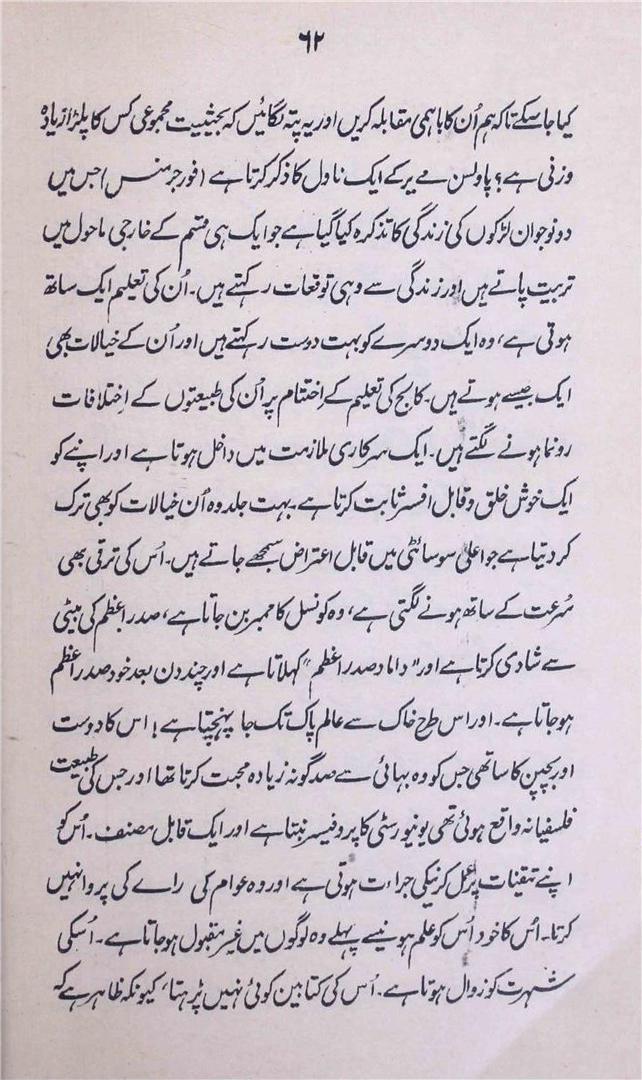 ۶۲
کیا جا سکے تاکہ ہم اُن کا باہمی مقابلہ کریں اور یہ پتہ لگائیں کہ بحیثیت مجموعی کس کا پلڑا زیادہ
وزنی ہے؟ پاولسن مے یر کے ایک ناول کا ذکر کرتا ہے (فور جرمنس) جس میں
دو نوجوان لڑکوں کی زندگی کا تذکرہ کیا گیا ہے جو ایک ہی قسم کے خارجی ماحول میں
تربیت پاتے ہیں اور زندگی سے وہی توقعات رکہتے ہیں۔ اُن کی تعلیم ایک ساتھ
ہوتی ہے، وہ ایک دوسرے کو بہت دوست رکہتے ہیں اور اُن کے خیالات بھی
ایک جیسے ہوتے ہیں۔ کالج کی تعلیم کے اختتام پر اُن کی طبیعتوں کے اختلافات
رونما ہونے لگتے ہیں۔ ایک سرکاری ملازمت میں داخل ہوتا ہے اور اپنے کو
ایک خوش خلق و قابل افسر ثابت کرتا ہے۔ بہت جلد وہ اُن خیالات کو بھی ترک
کر دیتا ہے جو اعلیٰ سوسائٹی میں قابل اعتراض سمجھے جاتے ہیں۔ اُس کی ترقی بھی
سُرعت کے ساتھ ہونے لگتی ہے، وہ کونسل کا ممبر بن جاتا ہے، صدر اعظم کی بیٹی
سے شادی کرتا ہے اور "داماد صدر اعظم" کہلاتا ہے اور چند دن بعد خود صدر اعظم
ہو جاتا ہے۔ اور اس طرح خاک سے عالم پاک تک جا پہنچتا ہے! اس کا دوست
اور بچپن کا ساتھی جس کو وہ بہائی سے صد گونہ زیادہ محبت کرتا تھا اور جس کی طبیعت
فلسفیانہ واقع ہوئی تھی یونیورسٹی کا پروفیسر بنتا ہے اور ایک قابل مصنف۔ اُس کو
اپنے تیقنات پر عمل کرنیکی جراءت ہوتی ہے اور وہ عوام کی راے کی پروا نہیں
کرتا۔ اُس کا خود اُس کو علم ہونیسے پہلے وہ لوگوں میں غیر مقبول ہو جاتا ہے۔ اُسکی
شہرت کو زوال ہوتا ہے۔ اُس کی کتابین کوئی نہیں پڑہتا، کیونکہ ظاہر ہے کہ